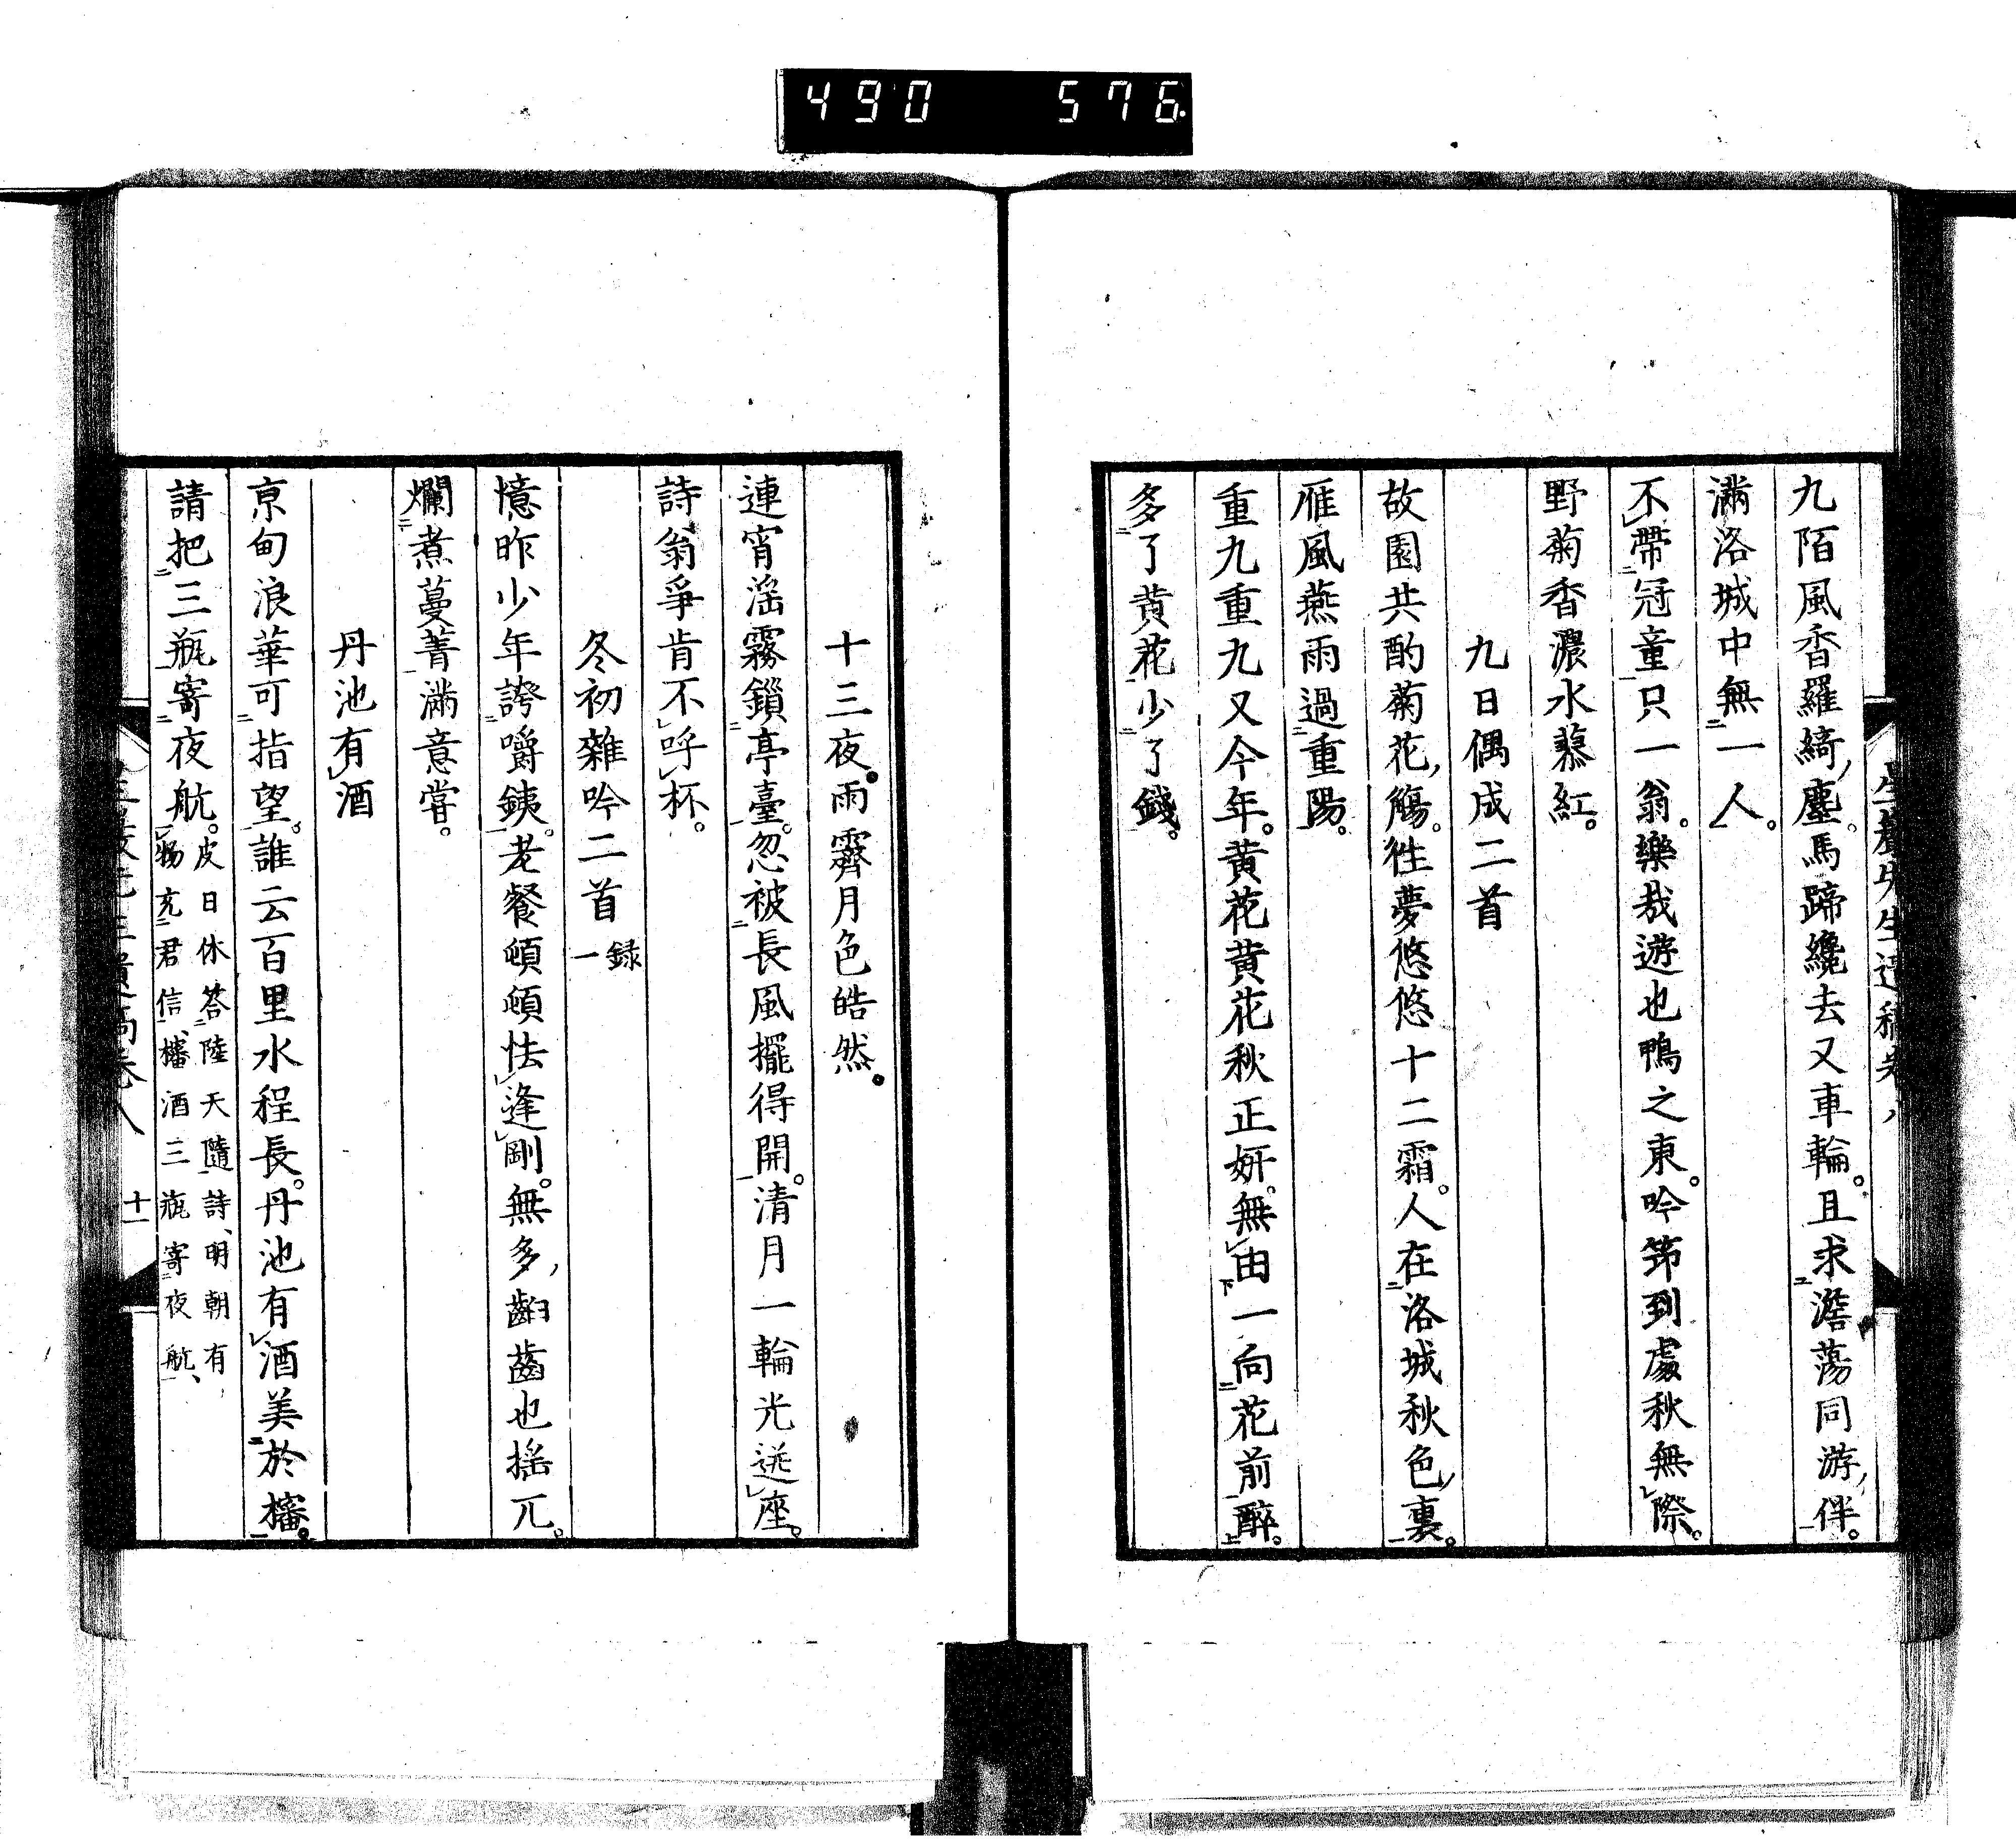 490 576
九陌風香羅綺塵。馬蹄纔去又車輪。且求澹蕩同游伴。
滿洛城中無一人。
不帶冠童只一翁。樂哉遊也鴨之東。吟筇到處秋無際。
野菊香濃水蓼紅。
九日偶成二首
故園共酌菊花觴。徃夢悠悠十二霜。人在洛城秋色裏。
雁風燕雨過重陽。
重九重九又今年。黄花黄花秋正妍。無由一向花前醉。
多了黄花少了錢。
十三夜。雨霽月色皓然。
連宵滛霧鎻亭臺。忽被長風擺得開。清月一輪光送座。
詩翁爭肯不呼杯。
冬初雜吟二首 録一
憶昨少年誇嚼銕。老餐頓頓怯逢剛。無多齨齒也搖兀。
爛煮蔓菁滿意嘗。
丹池有酒
京甸浪華可指望。誰云百里水程長。丹池有酒美於櫧。
請把三瓶寄夜航。皮日休答陸天隨詩、明朝有
物充君信、櫧酒三瓶寄夜航、
十一